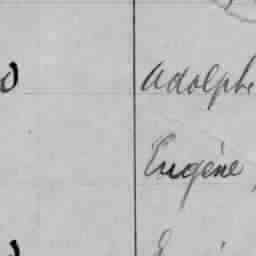 Adolphe
Eugène